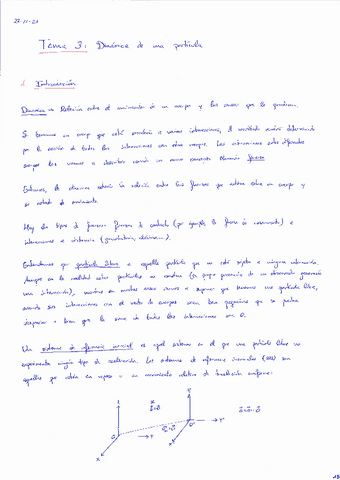 22-11-21
Tema 3: Dinámica de una partícula
1. Introducción
Dinámica → Relación entre el movimiento de un cuerpo y las causas que lo generan.
Si tenemos un cuerpo que está sometido a varias interacciones, el resultado vendrá determinado
por la acción de todas las interacciones con otros cuerpos. Las interacciones entre diferentes
cuerpos las vamos a describir con un nuevo concepto llamado fuerza
Entonces, la dinámica estudia la relación entre las fuerzas que actúan sobre un cuerpo y
su estado de movimiento.
Hay dos tipos de fuerzas: fuerzas de contacto (por ejemplo, la fuerza de rozamiento) e
interacciones a distancia (gravitatoria,
Entendemos por partícula libre a aquella partícula que no está sujeta a ninguna interacción.
Aunque en la realidad estas partículas no existen (la propia presencia de un observador generaría
una interacción), nosotros en muchos casos vamos a suponer que tenemos una partícula libre,
cuando sus interacciones con el resto de cuerpos sean tan pequeñas que se puedan
despreciar o bien que la suma de todas las interacciones sea 0.
Un sistema de referencia inercial es aquel sistema en el que una partícula libre no
experimenta ningún tipo de aceleración. Los sistemas de referencia inerciales son
aquellos que están en reposo o en movimiento relativo de traslación uniforme.
Z
Z'
O
Y
O'
Y'
X
X'